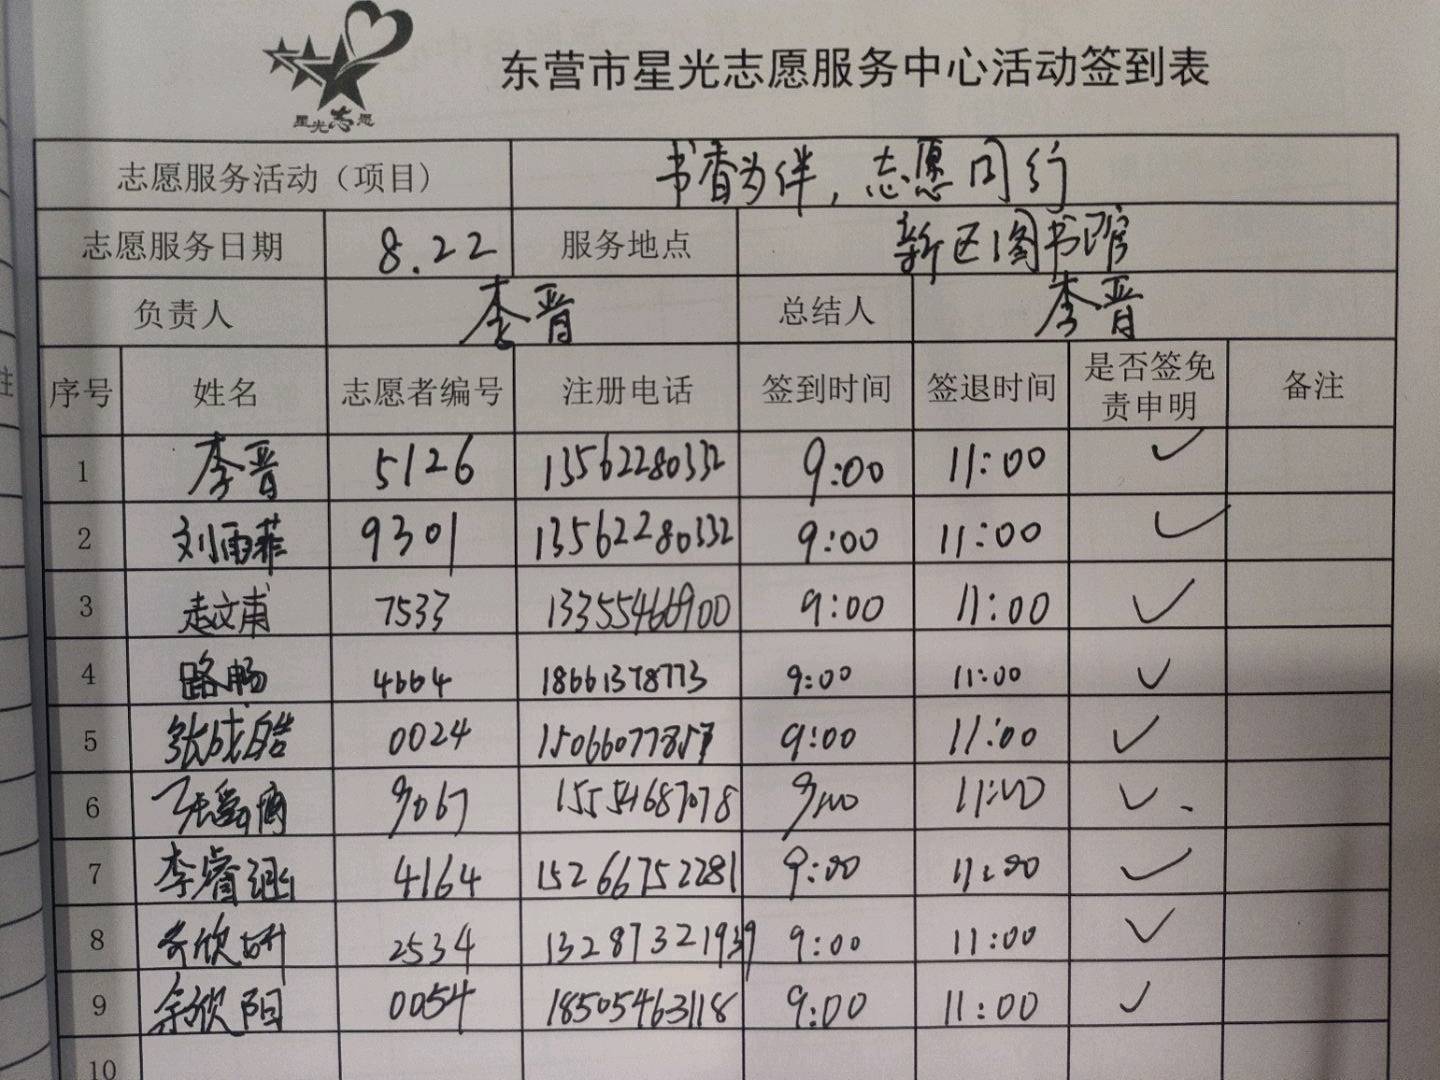 星光志愿
东营市星光志愿服务中心活动签到表
志愿服务活动（项目） 书香为伴，志愿同行
志愿服务日期 8.22 服务地点 新区图书馆
负责人 李晋 总结人 李晋
序号 姓名 志愿者编号 注册电话 签到时间 签退时间 是否签免责申明 备注
1 李晋 5126 13562280332 9:00 11:00 ✓
2 刘雨菲 9301 13562280332 9:00 11:00 ✓
3 赵文甫 7533 13355466900 9:00 11:00 ✓
4 路畅 4664 18661378773 9:00 11:00 ✓
5 张成皓 0024 15066077857 9:00 11:00 ✓
6 9067 15554687078 9:00 11:00 ✓
7 李睿涵 4164 15266752281 9:00 11:00 ✓
8 欣妍 2534 13287321939 9:00 11:00 ✓
9 余欣阳 0054 18505463118 9:00 11:00 ✓
10